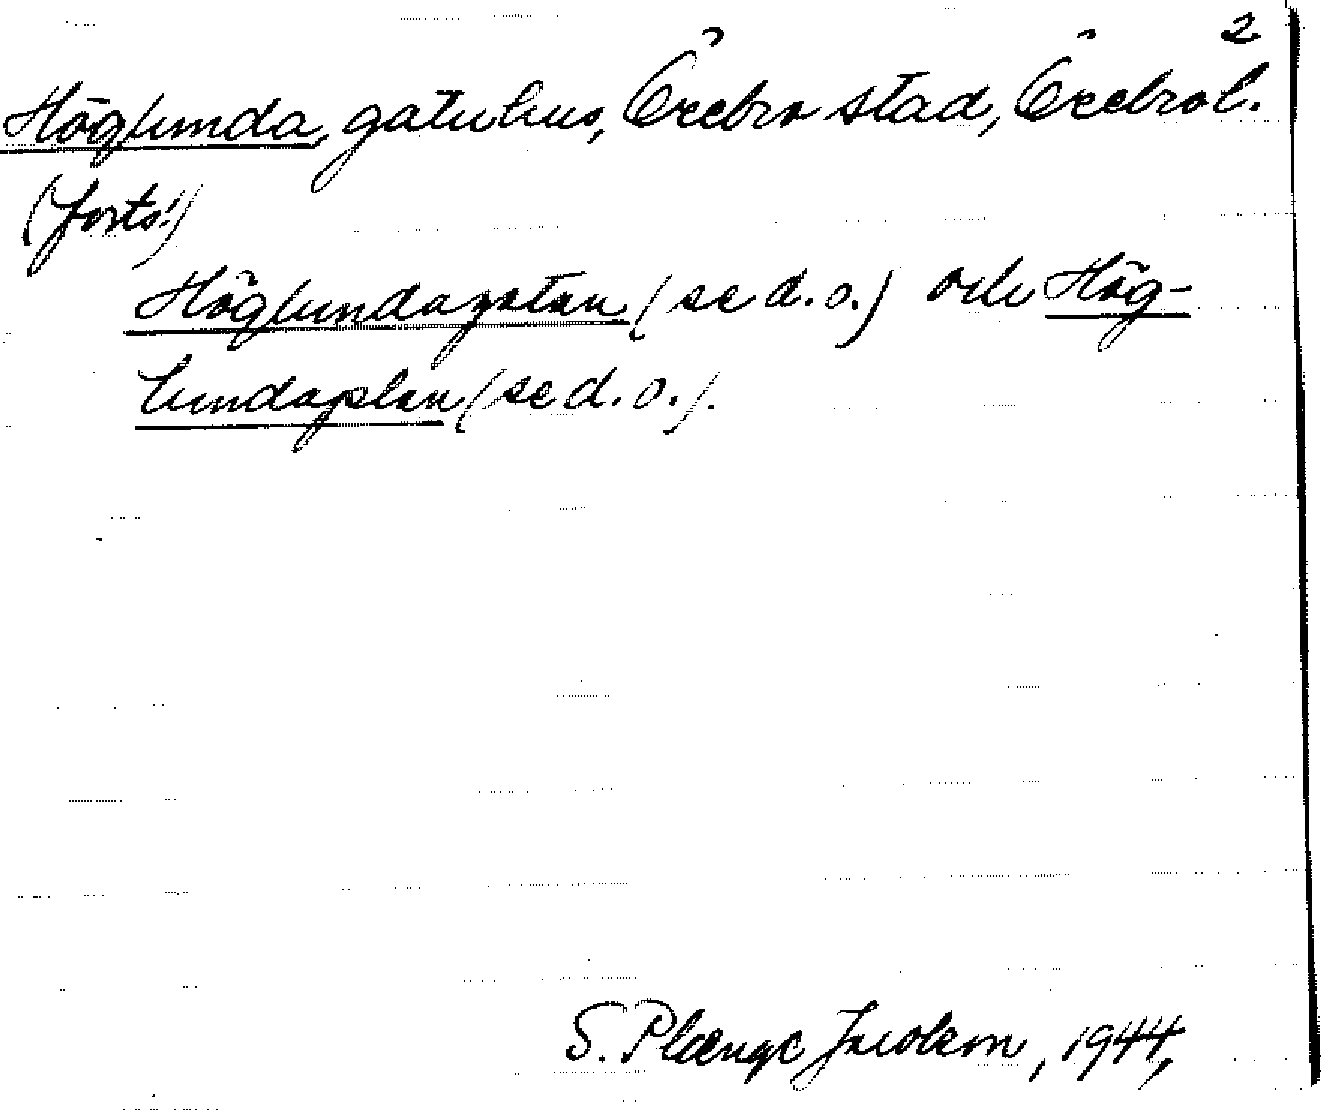 2
Höglunda, gatuhus, Örebro stad, Örebro l.
(forts.)
Höglundagatan (se d. o.) och Hög-
lundaplan (se d. o.).
S. Plænge Jacobson, 1944,